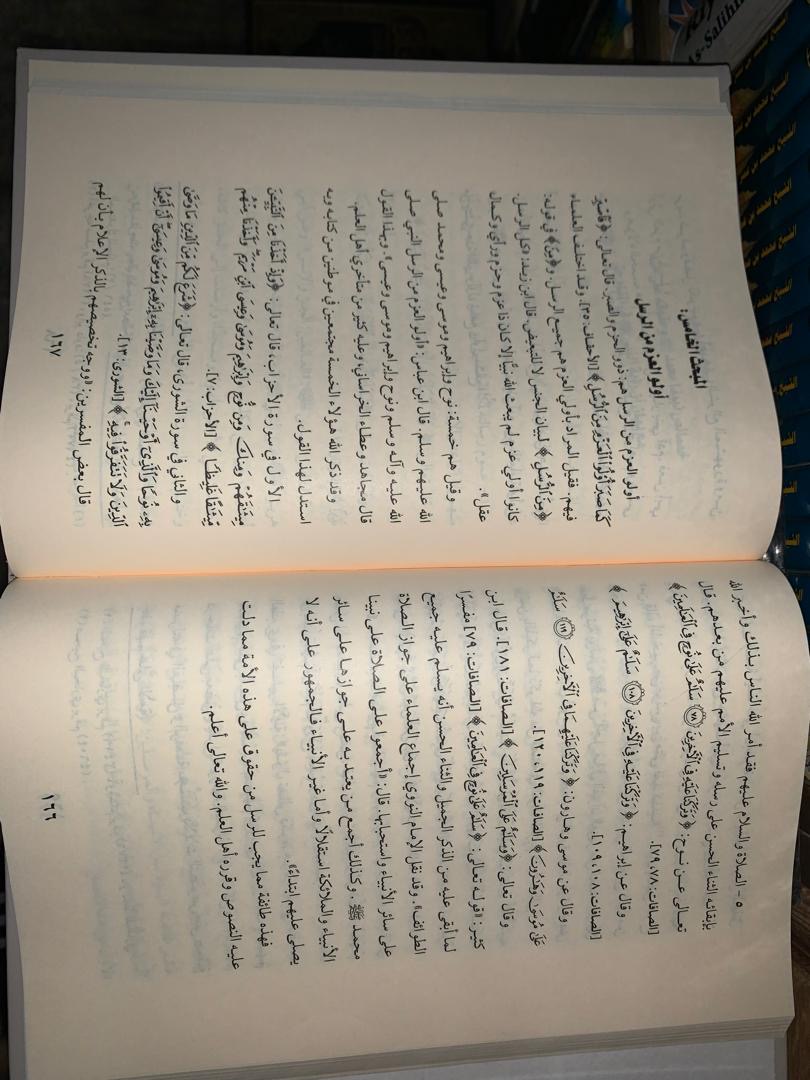 ٥ - الصلاة والسلام عليهم فقد أمر الله الناس بذلك وأخبر الله
بإبقائه الثناء الحسن على رسله وتسليم الأمم عليهم من بعدهم. قال
تعالى عن نوح: ﴿ وَتَرَكْنَا عَلَيْهِ فِي الْآخِرِينَ ۝٧٨ سَلَامٌ عَلَى نُوحٍ فِي الْعَالَمِينَ ﴾
[الصافات: ٧٨، ٧٩].
وقال عن إبراهيم: ﴿ وَتَرَكْنَا عَلَيْهِ فِي الْآخِرِينَ ۝١٠٨ سَلَامٌ عَلَى إِبْرَاهِيمَ ﴾
[الصافات: ١٠٨، ١٠٩].
وقال عن موسى وهارون: ﴿ وَتَرَكْنَا عَلَيْهِمَا فِي الْآخِرِينَ ۝١١٩ سَلَامٌ
عَلَى مُوسَى وَهَارُونَ ﴾ [الصافات: ١١٩، ١٢٠].
وقال تعالى: ﴿ وَسَلَامٌ عَلَى الْمُرْسَلِينَ ﴾ [الصافات: ١٨١]. قال ابن
كثير: «قوله تعالى: ﴿ سَلَامٌ عَلَى نُوحٍ فِي الْعَالَمِينَ ﴾ [الصافات: ٧٩] مفسرًا
لما أبقى عليه من الذكر الجميل والثناء الحسن أنه يسلم عليه جميع
الطوائف». وقد نقل الإمام النووي إجماع العلماء على جواز الصلاة
على سائر الأنبياء واستحبابها. قال: «أجمعوا على الصلاة على نبينا
محمد ﷺ. وكذلك أجمع من يعتد به على جوازها على سائر
الأنبياء والملائكة استقلالًا وأما غير الأنبياء فالجمهور على أنه لا
يصلى عليهم ابتداءً».
فهذه طائفة مما يجب للرسل من حقوق على هذه الأمة مما دلت
عليه النصوص وقرره أهل العلم. والله تعالى أعلم.
١٦٦
المبحث الخامس:
أولو العزم من الرسل
أولو العزم من الرسل هم: ذوو الحزم والصبر. قال تعالى: ﴿ فَاصْبِرْ
كَمَا صَبَرَ أُولُوا الْعَزْمِ مِنَ الرُّسُلِ ﴾ [الأحقاف: ٣٥]. وقد اختلف العلماء
فيهم. فقيل المراد بأولي العزم هم جميع الرسل. و﴿مِنَ﴾ في قوله:
﴿مِنَ الرُّسُلِ ﴾ لبيان الجنس لا للتبعيض. قال ابن زيد: «كل الرسل.
كانوا أولي عزم لم يبعث الله نبيًّا إلا كان ذا عزم وحزم ورأي وكمال
عقل».
وقيل هم خمسة: نوح وإبراهيم وموسى وعيسى ومحمد صلى
الله عليهم وسلم. قال ابن عباس: «أولو العزم من الرسل النبي صلى
الله عليه وآله وسلم ونوح وإبراهيم وموسى وعيسى». وبهذا القول
قال مجاهد وعطاء الخراساني، وعليه كثير من متأخري أهل العلم.
وقد ذكر الله هؤلاء الخمسة مجتمعين في موطنين من كتابه وبه
استدل لهذا القول.
الأول في سورة الأحزاب، قال تعالى: ﴿ وَإِذْ أَخَذْنَا مِنَ النَّبِيِّينَ
مِيثَاقَهُمْ وَمِنكَ وَمِن نُّوحٍ وَإِبْرَاهِيمَ وَمُوسَى وَعِيسَى ابْنِ مَرْيَمَ وَأَخَذْنَا مِنْهُم
مِّيثَاقًا غَلِيظًا ﴾ [الأحزاب: ٧].
والثاني في سورة الشورى، قال تعالى: ﴿ شَرَعَ لَكُم مِّنَ الدِّينِ مَا وَصَّى
بِهِ نُوحًا وَالَّذِي أَوْحَيْنَا إِلَيْكَ وَمَا وَصَّيْنَا بِهِ إِبْرَاهِيمَ وَمُوسَى وَعِيسَى أَنْ أَقِيمُوا
الدِّينَ وَلَا تَتَفَرَّقُوا فِيهِ ﴾ [الشورى: ١٣].
قال بعض المفسرين: «ووجه تخصيصهم بالذكر الإعلام بأن لهم
١٦٧
As-Salihin